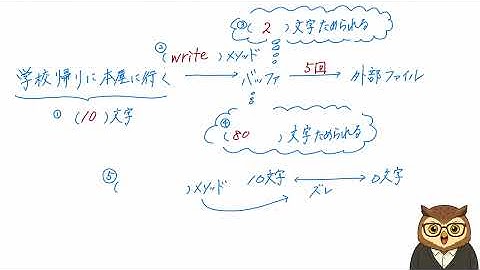 ③( 2 )文字ためられる
②(write)メソッド
学校帰りに本屋に行く → バッファ 5回 → 外部ファイル
①(10)文字
④(80 )文字ためられる
⑤( )メソッド 10文字 ズレ 0文字